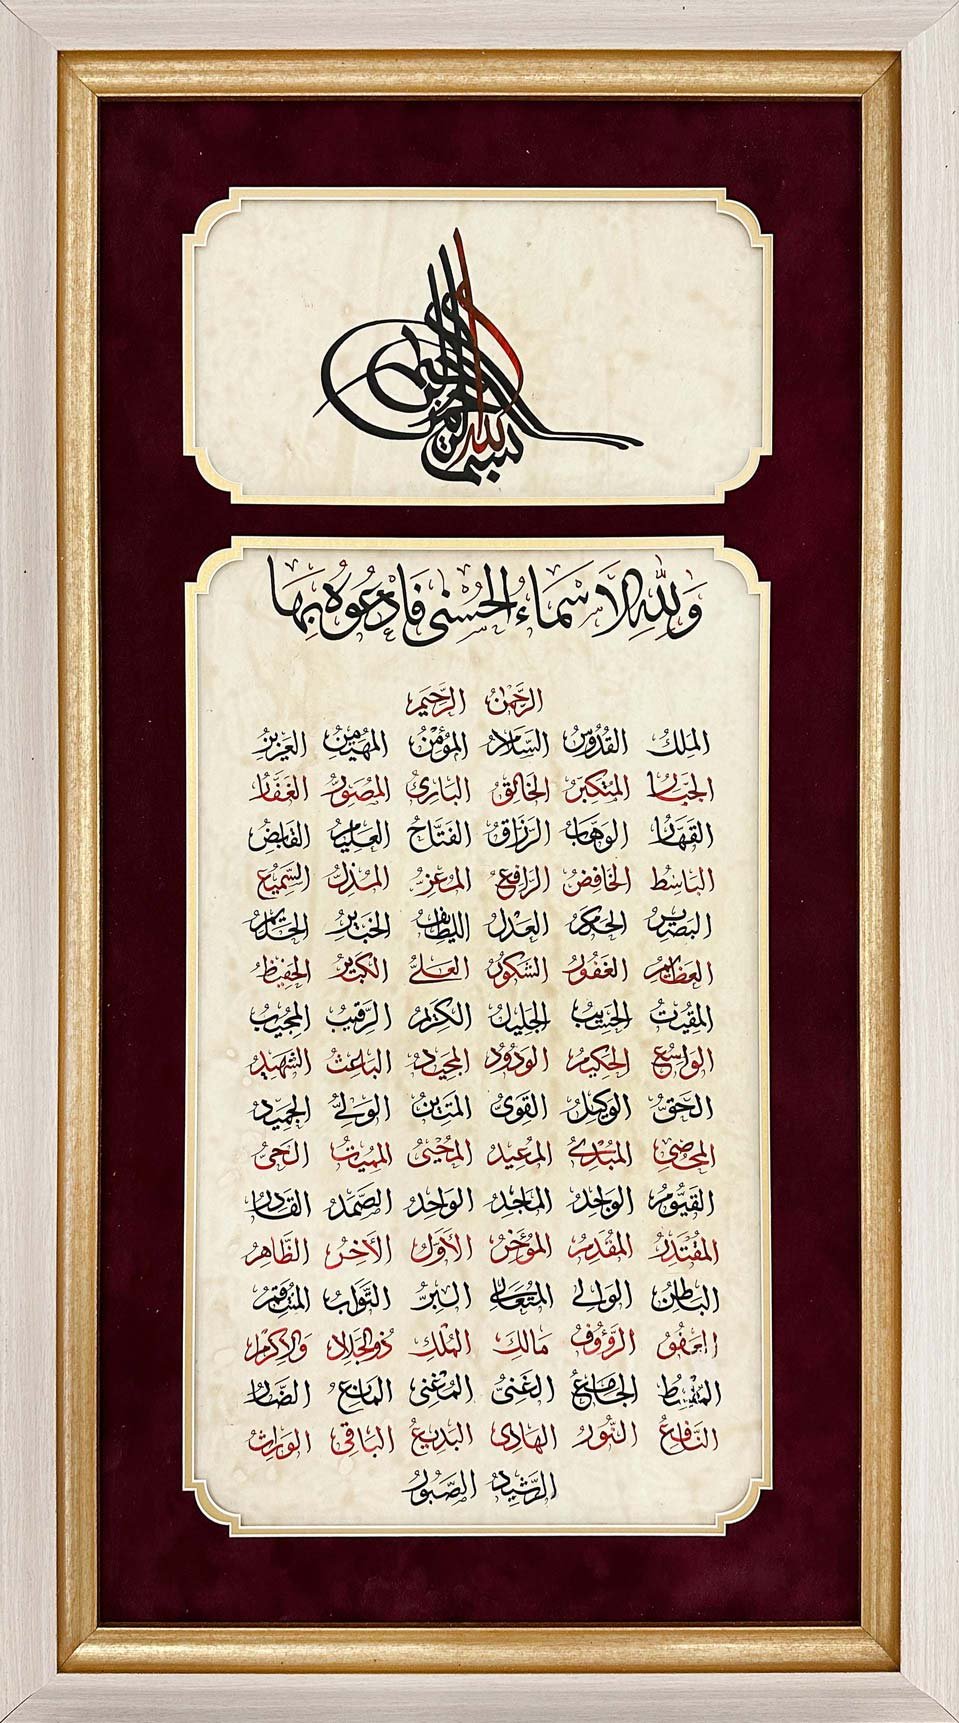 بسم الله الرحمن الرحيم
وَلِلّٰهِ الْأَسْمَاءُ الْحُسْنٰى فَادْعُوهُ بِهَا
الرَّحْمٰنُ الرَّحِيم
المَلِكُ القُدُّوسُ السَّلَامُ المُؤْمِنُ المُهَيْمِنُ العَزِيزُ
الجَبَّارُ المُتَكَبِّرُ الخَالِقُ البَارِئُ المُصَوِّرُ الغَفَّارُ
القَهَّارُ الوَهَّابُ الرَّزَّاقُ الفَتَّاحُ العَلِيمُ القَابِضُ
البَاسِطُ الخَافِضُ الرَّافِعُ المُعِزُّ المُذِلُّ السَّمِيعُ
البَصِيرُ الحَكَمُ العَدْلُ اللَّطِيفُ الخَبِيرُ الحَلِيمُ
العَظِيمُ الغَفُورُ الشَّكُورُ العَلِيُّ الكَبِيرُ الحَفِيظُ
المُقِيتُ الحَسِيبُ الجَلِيلُ الكَرِيمُ الرَّقِيبُ المُجِيبُ
الوَاسِعُ الحَكِيمُ الوَدُودُ المَجِيدُ البَاعِثُ الشَّهِيدُ
الحَقُّ الوَكِيلُ القَوِىُّ المَتِينُ الوَلِيُّ الحَمِيدُ
المُحْصِي المُبْدِئُ المُعِيدُ المُحْيِى المُمِيتُ الحَىُّ
القَيُّومُ الوَاجِدُ المَاجِدُ الوَاحِدُ الصَّمَدُ القَادِرُ
المُقْتَدِرُ المُقَدِّمُ المُؤَخِّرُ الأَوَّلُ الأَخِرُ الظَّاهِرُ
البَاطِنُ الوَالِي المُتَعَالِي البَرُّ التَّوَّابُ المُنْتَقِمُ
العَفُوُّ الرَّؤُوفُ مَالِكَ المُلْكِ ذُو الجَلَالِ وَالإِكْرَامِ
المُقْسِطُ الجَامِعُ الغَنِىُّ المُغْنِى المَانِعُ الضَّارُّ
النَّافِعُ النُّورُ الهَادِى البَدِيعُ البَاقِى الوَارِثُ
الرَّشِيدُ الصَّبُورُ